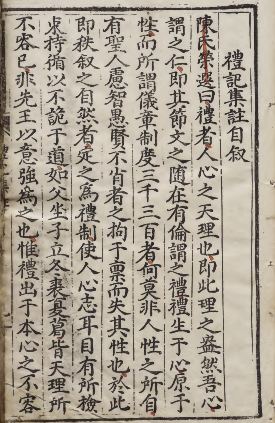 禮記集註自叙
陳氏榮選曰禮者人心之天理也即此理之盎然吾心
謂之仁即其節文之隨在有倫謂之禮禮生于心原于
性而所謂儀章制度三千三百者何莫非人性之所自
有聖人慮智愚賢不肖者之拘于禀而失其性也於此
即秩叙之自然者定之為禮制使人心志耳目有所檢
束持循以不詭于道如父坐子立冬裘夏葛皆天理所
不容已非先王以意強為之也惟禮出于本心之不容